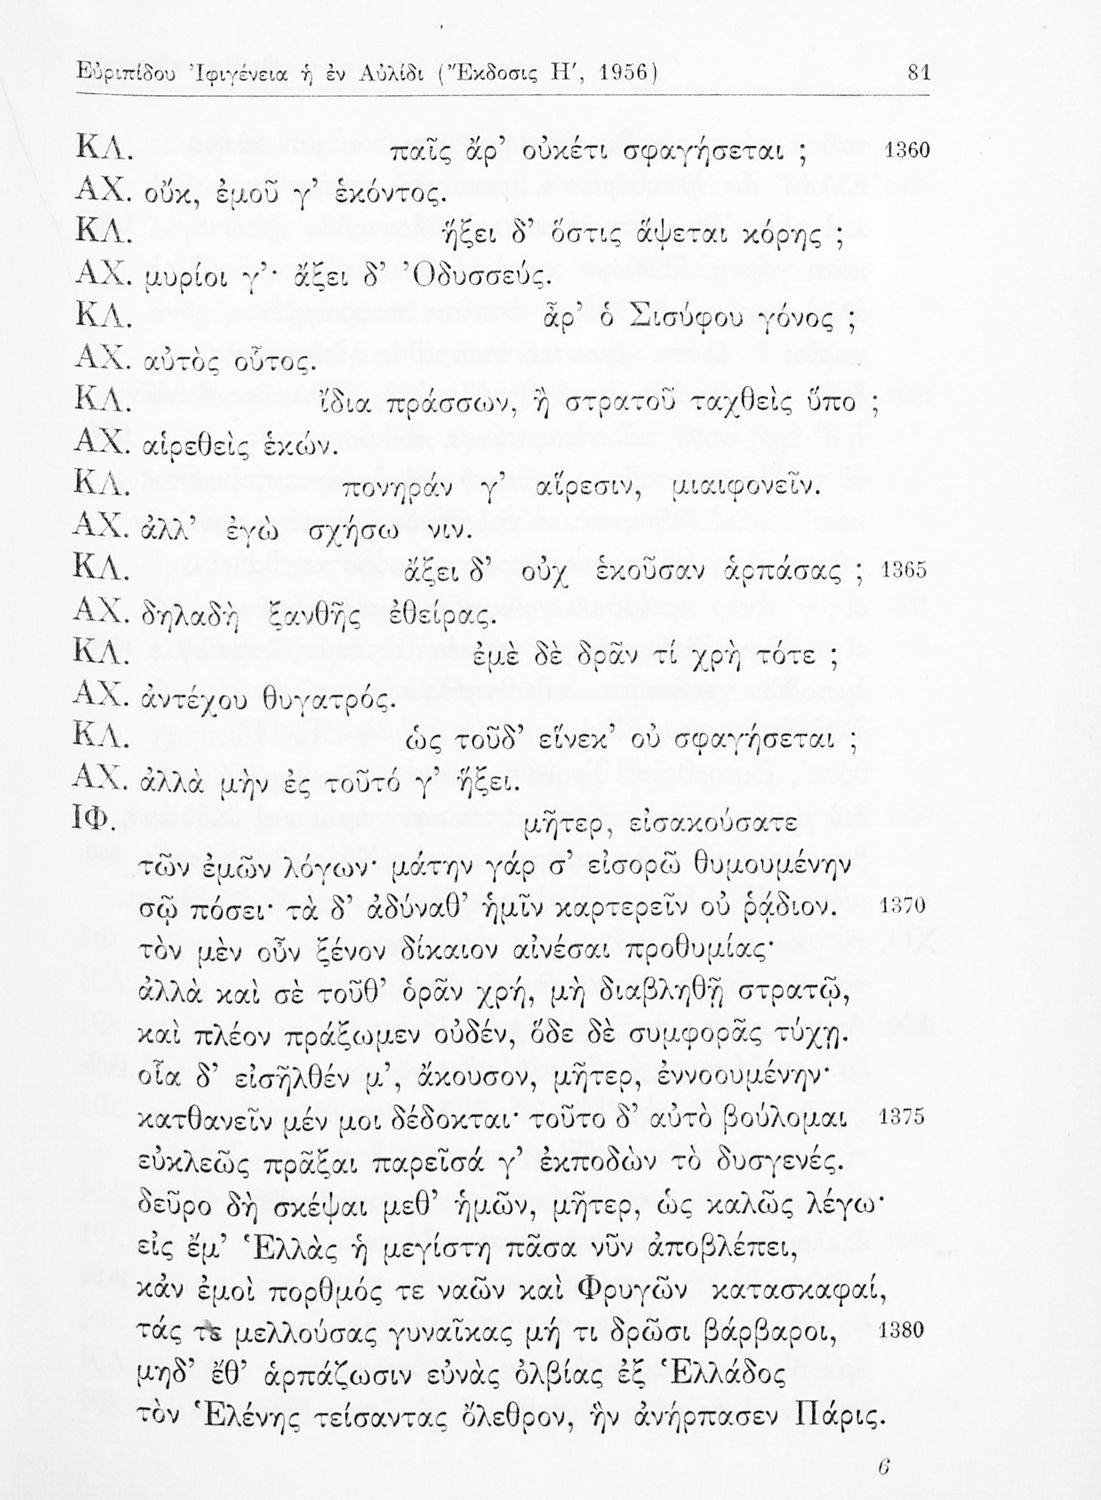 Εὐριπίδου Ἰφιγένεια ἡ ἐν Αὐλίδι (Ἔκδοσις Η', 1956) 81
ΚΛ. παῖς ἄρ' οὐκέτι σφαγήσεται ; 1360
ΑΧ. οὔκ, ἐμοῦ γ' ἑκόντος.
ΚΛ. ἥξει δ' ὅστις ἅψεται κόρης ;
ΑΧ. μυρίοι γ'· ἄξει δ' Ὀδυσσεύς.
ΚΛ. ἆρ' ὁ Σισύφου γόνος ;
ΑΧ. αὐτὸς οὗτος.
ΚΛ. ἴδια πράσσων, ἢ στρατοῦ ταχθεὶς ὕπο ;
ΑΧ. αἱρεθεὶς ἑκών.
ΚΛ. πονηράν γ' αἵρεσιν, μιαιφονεῖν.
ΑΧ. ἀλλ' ἐγὼ σχήσω νιν.
ΚΛ. ἄξει δ' οὐχ ἑκοῦσαν ἁρπάσας ; 1365
ΑΧ. δηλαδὴ ξανθῆς ἐθείρας.
ΚΛ. ἐμὲ δὲ δρᾶν τί χρὴ τότε ;
ΑΧ. ἀντέχου θυγατρός.
ΚΛ. ὡς τοῦδ' εἵνεκ' οὐ σφαγήσεται ;
ΑΧ. ἀλλὰ μὴν ἐς τοῦτό γ' ἥξει.
ΙΦ. μῆτερ, εἰσακούσατε
τῶν ἐμῶν λόγων· μάτην γάρ σ' εἰσορῶ θυμουμένην
σῷ πόσει· τὰ δ' ἀδύναθ' ἡμῖν καρτερεῖν οὐ ῥᾴδιον. 1370
τὸν μὲν οὖν ξένον δίκαιον αἰνέσαι προθυμίας·
ἀλλὰ καὶ σὲ τοῦθ' ὁρᾶν χρή, μὴ διαβληθῇ στρατῷ,
καὶ πλέον πράξωμεν οὐδέν, ὅδε δὲ συμφορᾶς τύχῃ.
οἷα δ' εἰσῆλθέν μ', ἄκουσον, μῆτερ, ἐννοουμένην·
κατθανεῖν μέν μοι δέδοκται· τοῦτο δ' αὐτὸ βούλομαι 1375
εὐκλεῶς πρᾶξαι παρεῖσά γ' ἐκποδὼν τὸ δυσγενές.
δεῦρο δὴ σκέψαι μεθ' ἡμῶν, μῆτερ, ὡς καλῶς λέγω·
εἰς ἔμ' Ἑλλὰς ἡ μεγίστη πᾶσα νῦν ἀποβλέπει,
κἀν ἐμοὶ πορθμός τε ναῶν καὶ Φρυγῶν κατασκαφαί,
τάς τε μελλούσας γυναῖκας μή τι δρῶσι βάρβαροι, 1380
μηδ' ἔθ' ἁρπάζωσιν εὐνὰς ὀλβίας ἐξ Ἑλλάδος
τὸν Ἑλένης τείσαντας ὄλεθρον, ἣν ἀνήρπασεν Πάρις.
6